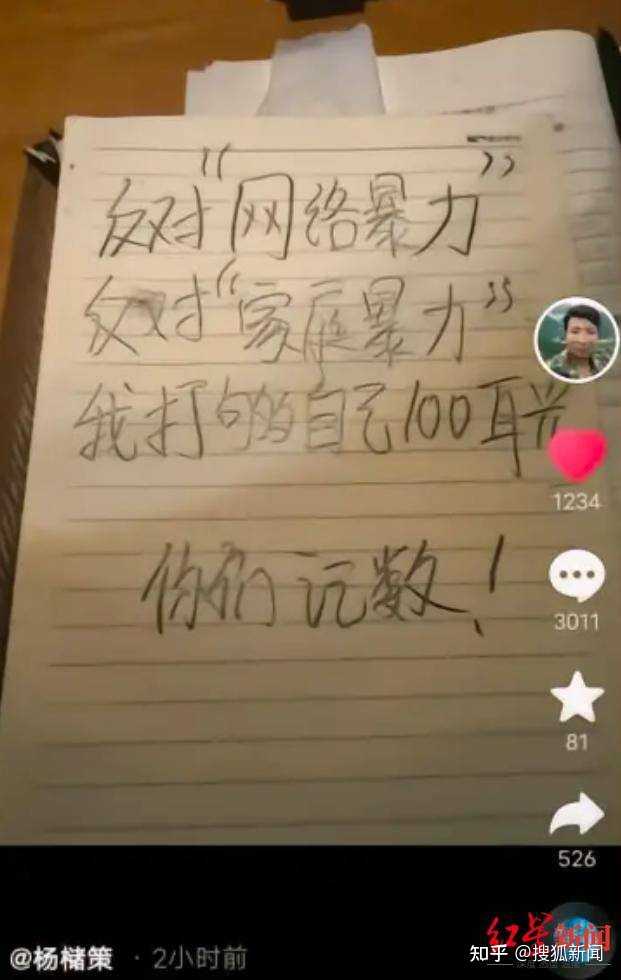 反对“网络暴力”
反对“家庭暴力”
我打够自己100耳光
你们记数！
1234
3011
81
526
红星新闻
@杨槠策 · 2小时前
知乎 @搜狐新闻